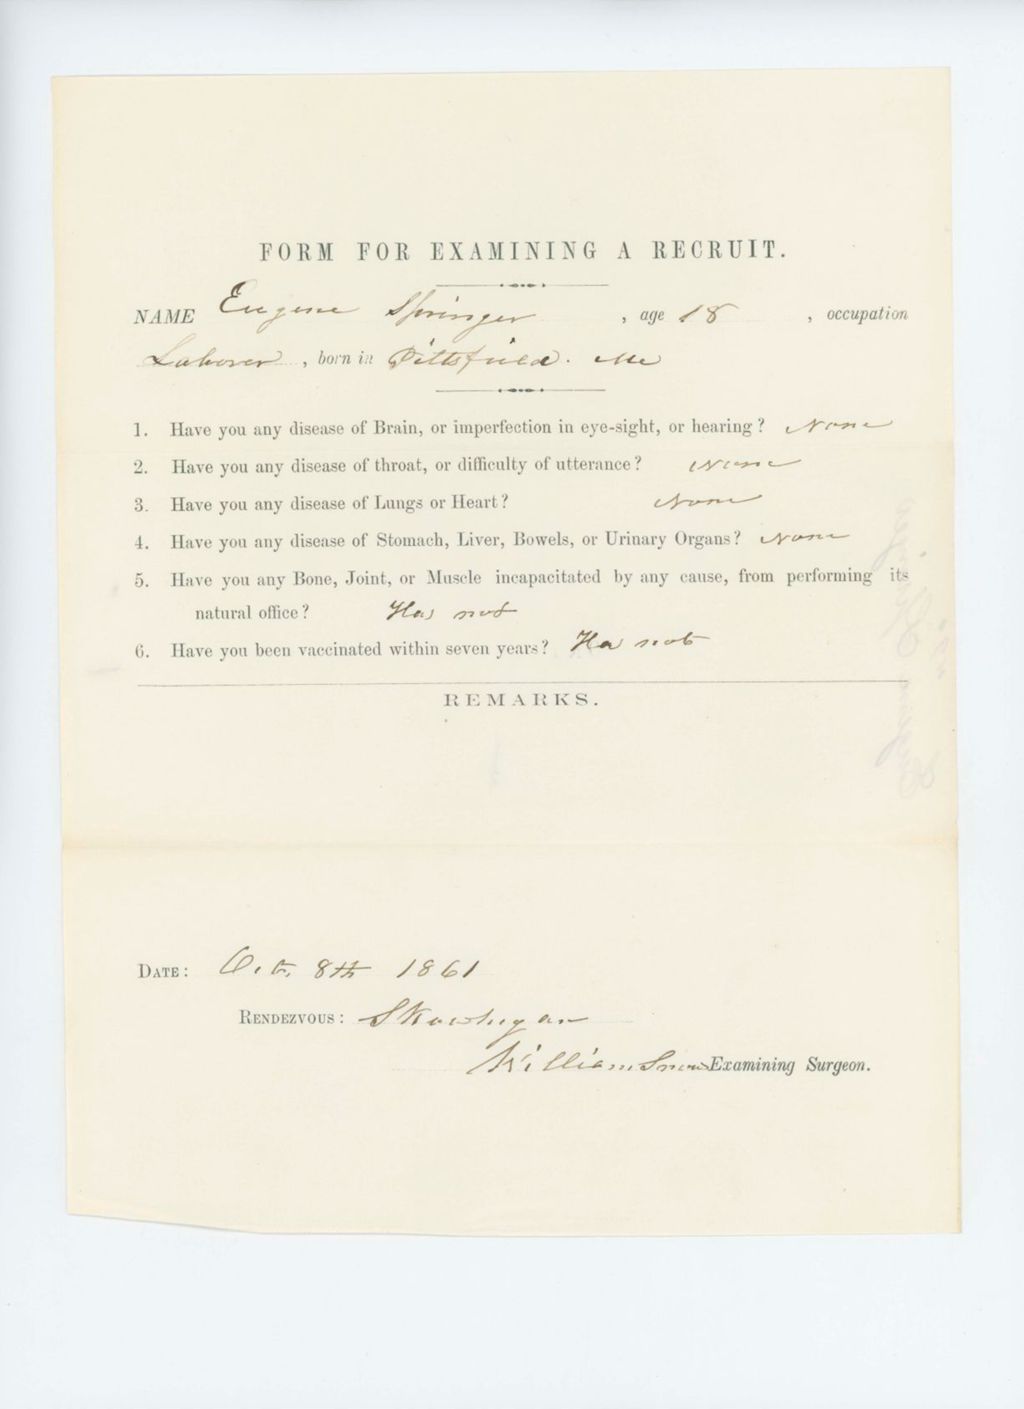 FORM FOR EXAMINING A RECRUIT.
NAME Eugene Springer , age 18 , occupation
Laborer , born in Pittsfield. Me
1. Have you any disease of Brain, or imperfection in eye-sight, or hearing? None
2. Have you any disease of throat, or difficulty of utterance? None
3. Have you any disease of Lungs or Heart? None
4. Have you any disease of Stomach, Liver, Bowels, or Urinary Organs? None
5. Have you any Bone, Joint, or Muscle incapacitated by any cause, from performing its
natural office? Has not
6. Have you been vaccinated within seven years? Ha not
REMARKS.
DATE: Oct. 8th 1861
RENDEZVOUS: Skowhegan
William Snow Examining Surgeon.